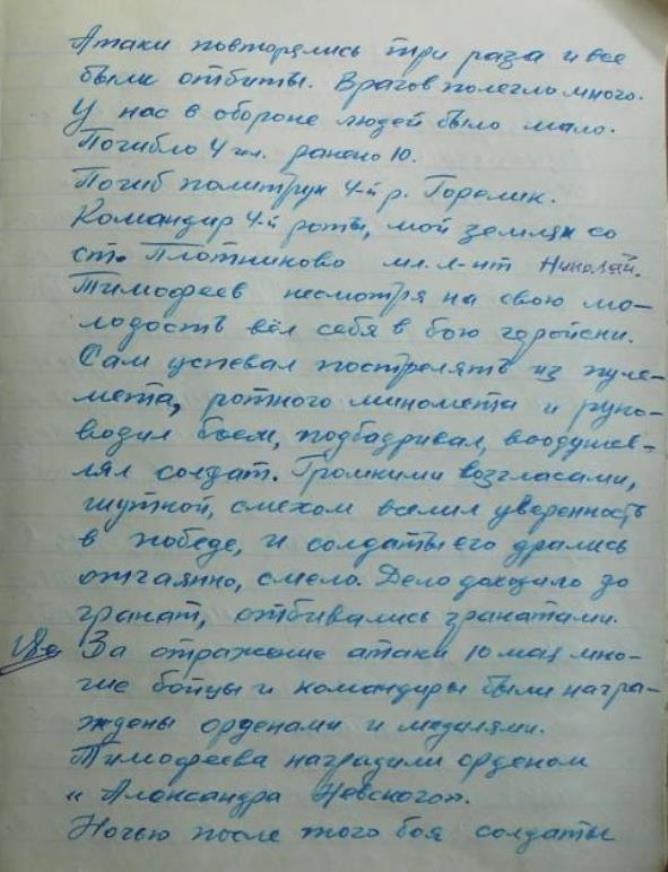 Атаки повторялись три раза и все
были отбиты. Врагов полегло много.
У нас в обороне людей было мало.
Погибло 4 чел. ранено 10.
Погиб политрук 4-й р. Горелик.
Командир 4-й роты, мой земляк со
ст. Плотниково мл. л-нт Николай.
Тимофеев несмотря на свою мо-
лодость вёл себя в бою геройски.
Сам успевал пострелять из пуле-
мета, ротного миномета и руко-
водил боем, подбадривал, воодушев-
лял солдат. Громкими возгласами,
шуткой, смехом вселил уверенность
в победе, и солдаты его дрались
отчаянно, смело. Дело доходило до
гранат, отбивались гранатами.
За отражение атаки 10 мая мно-
гие бойцы и командиры были награ-
ждены орденами и медалями.
Тимофеева наградили орденом
"Александра Невского".
Ночью после того боя солдаты